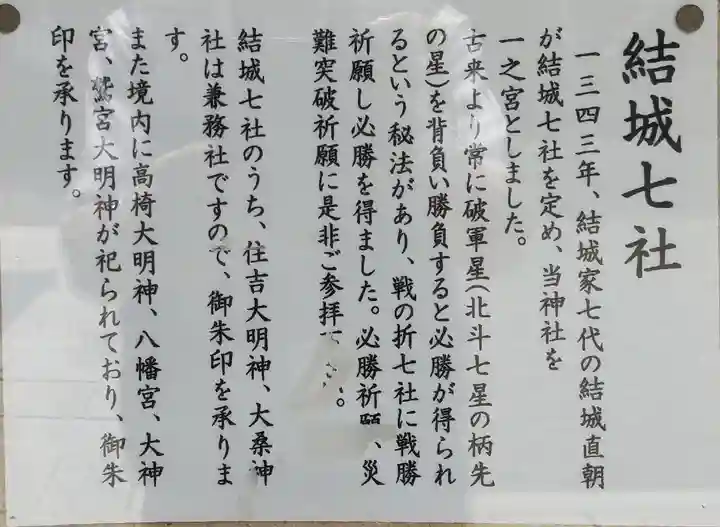 結城七社
一三四三年、結城家七代の結城直朝
が結城七社を定め、当神社を
一之宮としました。
古来より常に破軍星(北斗七星の柄先
の星)を背負い勝負すると必勝が得られ
るという秘法があり、戦の折七社に戦勝
祈願し必勝を得ました。必勝祈願、災
難突破祈願に是非ご参拝下さい。
結城七社のうち、住吉大明神、大桑神
社は兼務社ですので、御朱印を承りま
す。
また境内に高椅大明神、八幡宮、大神
宮、鷲宮大明神が祀られており、御朱
印を承ります。